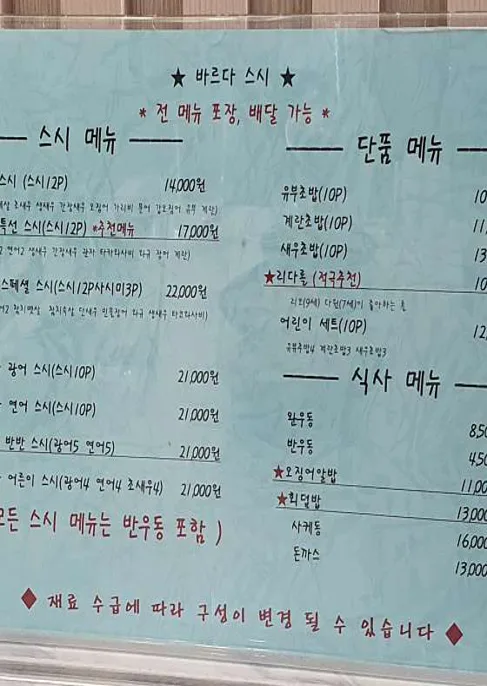 ★ 바르다 스시 ★
* 전 메뉴 포장, 배달 가능 *
스시 메뉴
스시 (스시12P) 14,000원
특선 스시(스시12P) *추천메뉴 17,000원
스페셜 스시(스시12P사시미3P) 22,000원
광어 스시(스시10P) 21,000원
연어 스시(스시10P) 21,000원
반반 스시(광어5 연어5) 21,000원
어른이 스시(광어4 연어4 초새우4) 21,000원
모든 스시 메뉴는 반우동 포함 )
단품 메뉴
유부초밥(10P) 10
계란초밥(10P) 11,
새우초밥(10P) 13
★리다롤 (적극추천) 10
리오(9세) 다원(7세)이 좋아하는 롤
어린이 세트(10P) 12,
유부초밥4 계란초밥3 새우초밥3
식사 메뉴
완우동 8,50
반우동 4,50
★오징어알밥 11,00
★회덮밥 13,000
사케동 16,000
돈까스 13,000
◆ 재료 수급에 따라 구성이 변경 될 수 있습니다 ◆